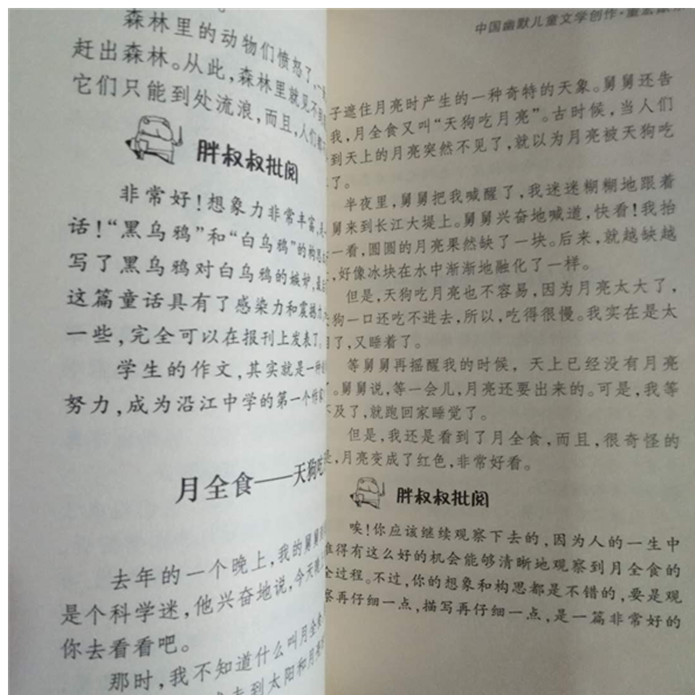 森林里的动物们愤怒了，
赶出森林。从此，森林里就见不到
它们只能到处流浪，而且，人们
胖叔叔批阅
非常好！想象力非常丰富，
话！“黑乌鸦”和“白乌鸦”的构思
写了黑乌鸦对白乌鸦的嫉妒，最
这篇童话具有了感染力和震撼
一些，完全可以在报刊上发表了。
学生的作文，其实就是一种
努力，成为沿江中学的第一个作家
月全食——天狗吃
去年的一个晚上，我的舅舅
是个科学迷，他兴奋地说，今天晚
你去看看吧。
那时，我不知道什么叫月全食
走到太阳和月
中国幽默儿童文学创作·
子遮住月亮时产生的一种奇特的天象。舅舅还告
我，月全食又叫“天狗吃月亮”。古时候，当人们
到天上的月亮突然不见了，就以为月亮被天狗吃
了。
半夜里，舅舅把我喊醒了，我迷迷糊糊地跟着
舅来到长江大堤上。舅舅兴奋地喊道，快看！我抬
一看，圆圆的月亮果然缺了一块。后来，就越缺越
，好像冰块在水中渐渐地融化了一样。
但是，天狗吃月亮也不容易，因为月亮太大了，
狗一口还吃不进去，所以，吃得很慢。我实在是太
了，又睡着了。
等舅舅再摇醒我的时候，天上已经没有月亮
了。舅舅说，等一会儿，月亮还要出来的。可是，我等
不及了，就跑回家睡觉了。
但是，我还是看到了月全食，而且，很奇怪的
是，月亮变成了红色，非常好看。
胖叔叔批阅
唉！你应该继续观察下去的，因为人的一生中
难得有这么好的机会能够清晰地观察到月全食的
全过程。不过，你的想象和构思都是不错的，要是观
察再仔细一点，描写再仔细一点，是一篇非常好的